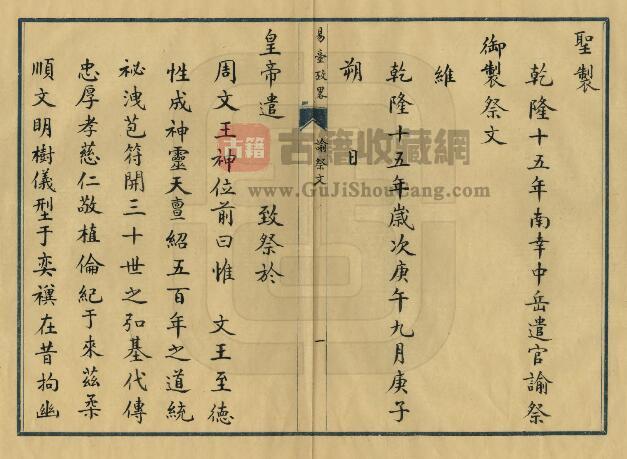 聖製
乾隆十五年南幸中岳遣官諭祭
御製祭文
維
乾隆十五年歲次庚午九月庚子
朔 日
易臺攷畧
諭祭文
一
皇帝遣 致祭於
周文王神位前曰惟 文王至德
性成神靈天亶紹五百年之道統
祕洩苞符開三十世之弘基代傳
忠厚孝慈仁敬植倫紀于來茲柔
順文明樹儀型于奕禩在昔拘幽
古籍
古籍收藏網
www.GuJiShouCang.com